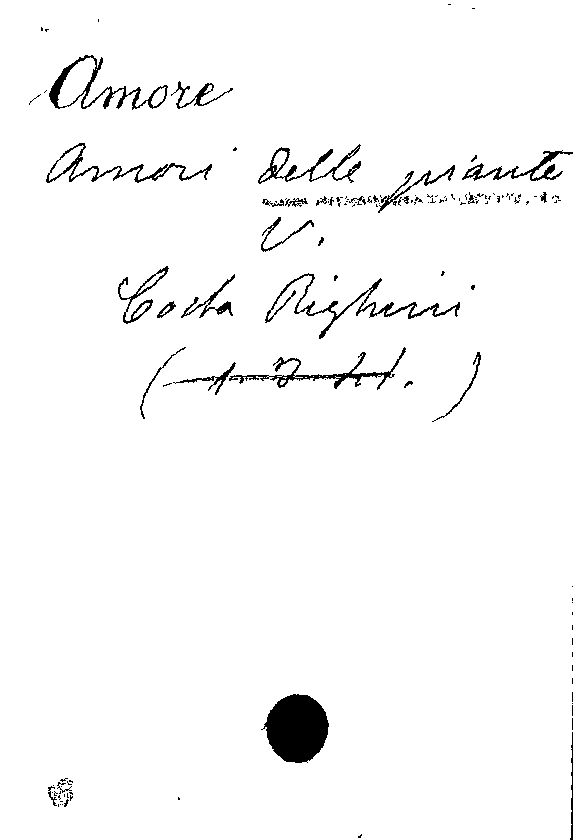 Amore
Amori delle piante
V.
Costa Righini